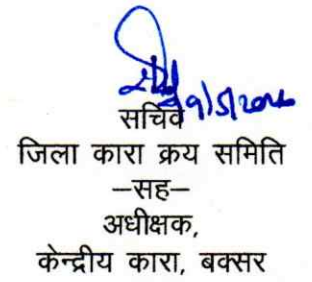 सचिव
जिला कारा क्रय समिति
–सह–
अधीक्षक,
केन्द्रीय कारा, बक्सर